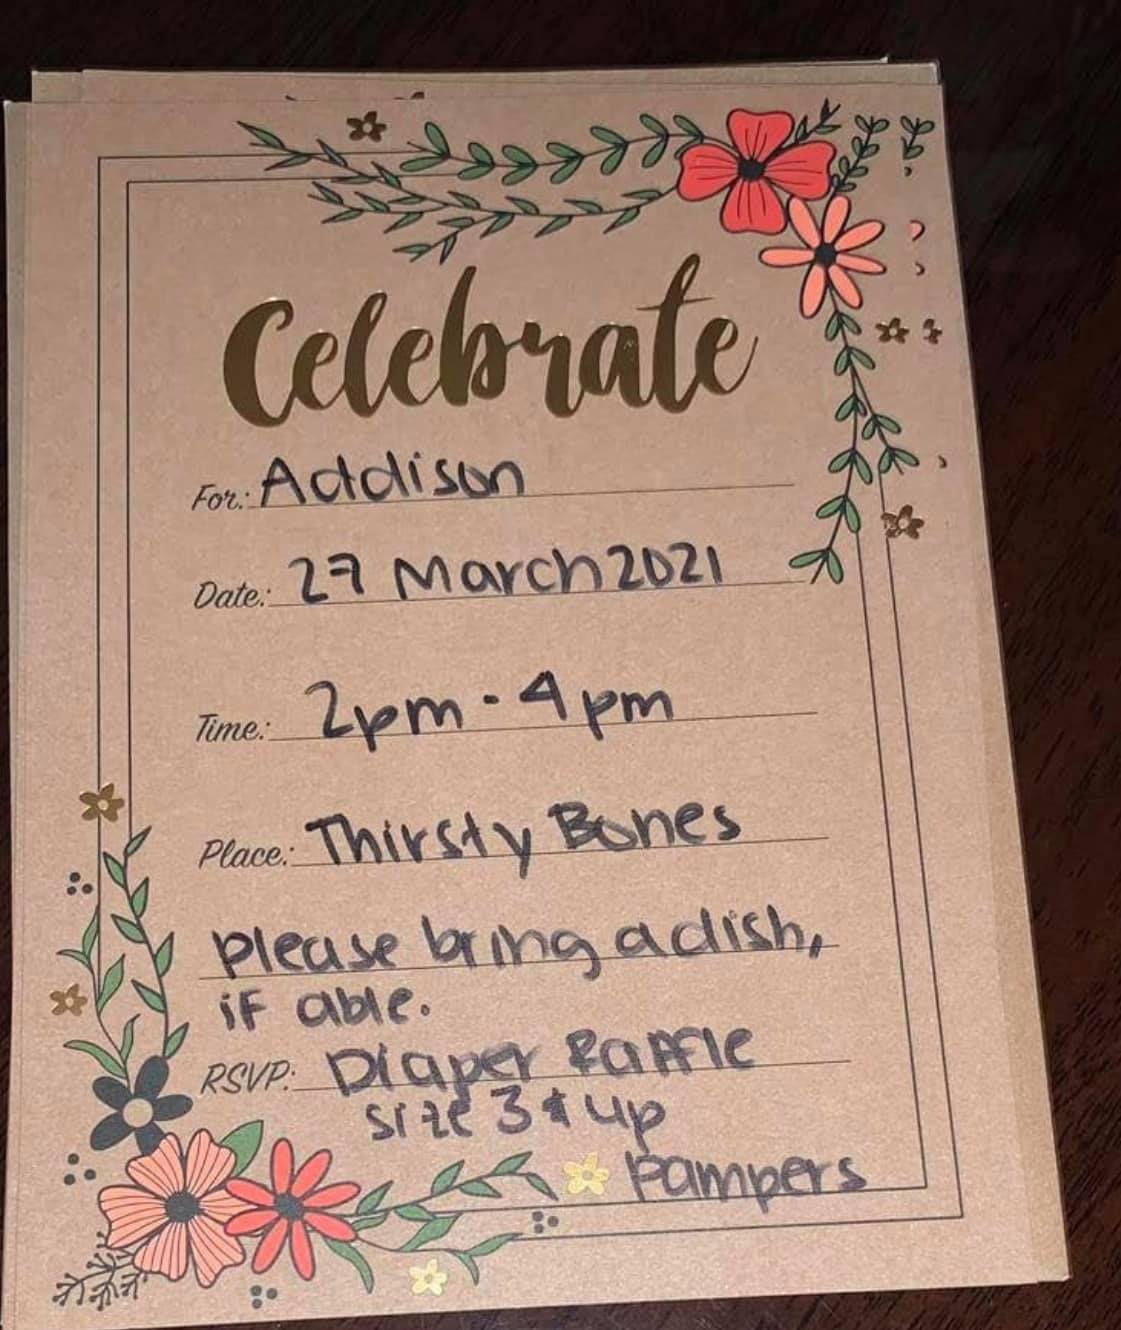 Celebrate
For: Addison
Date: 27 March 2021
Time: 2pm - 4pm
Place: Thirsty Bones
please bring a dish,
if able.
RSVP: Diaper Raffle
size 3 & up
pampers